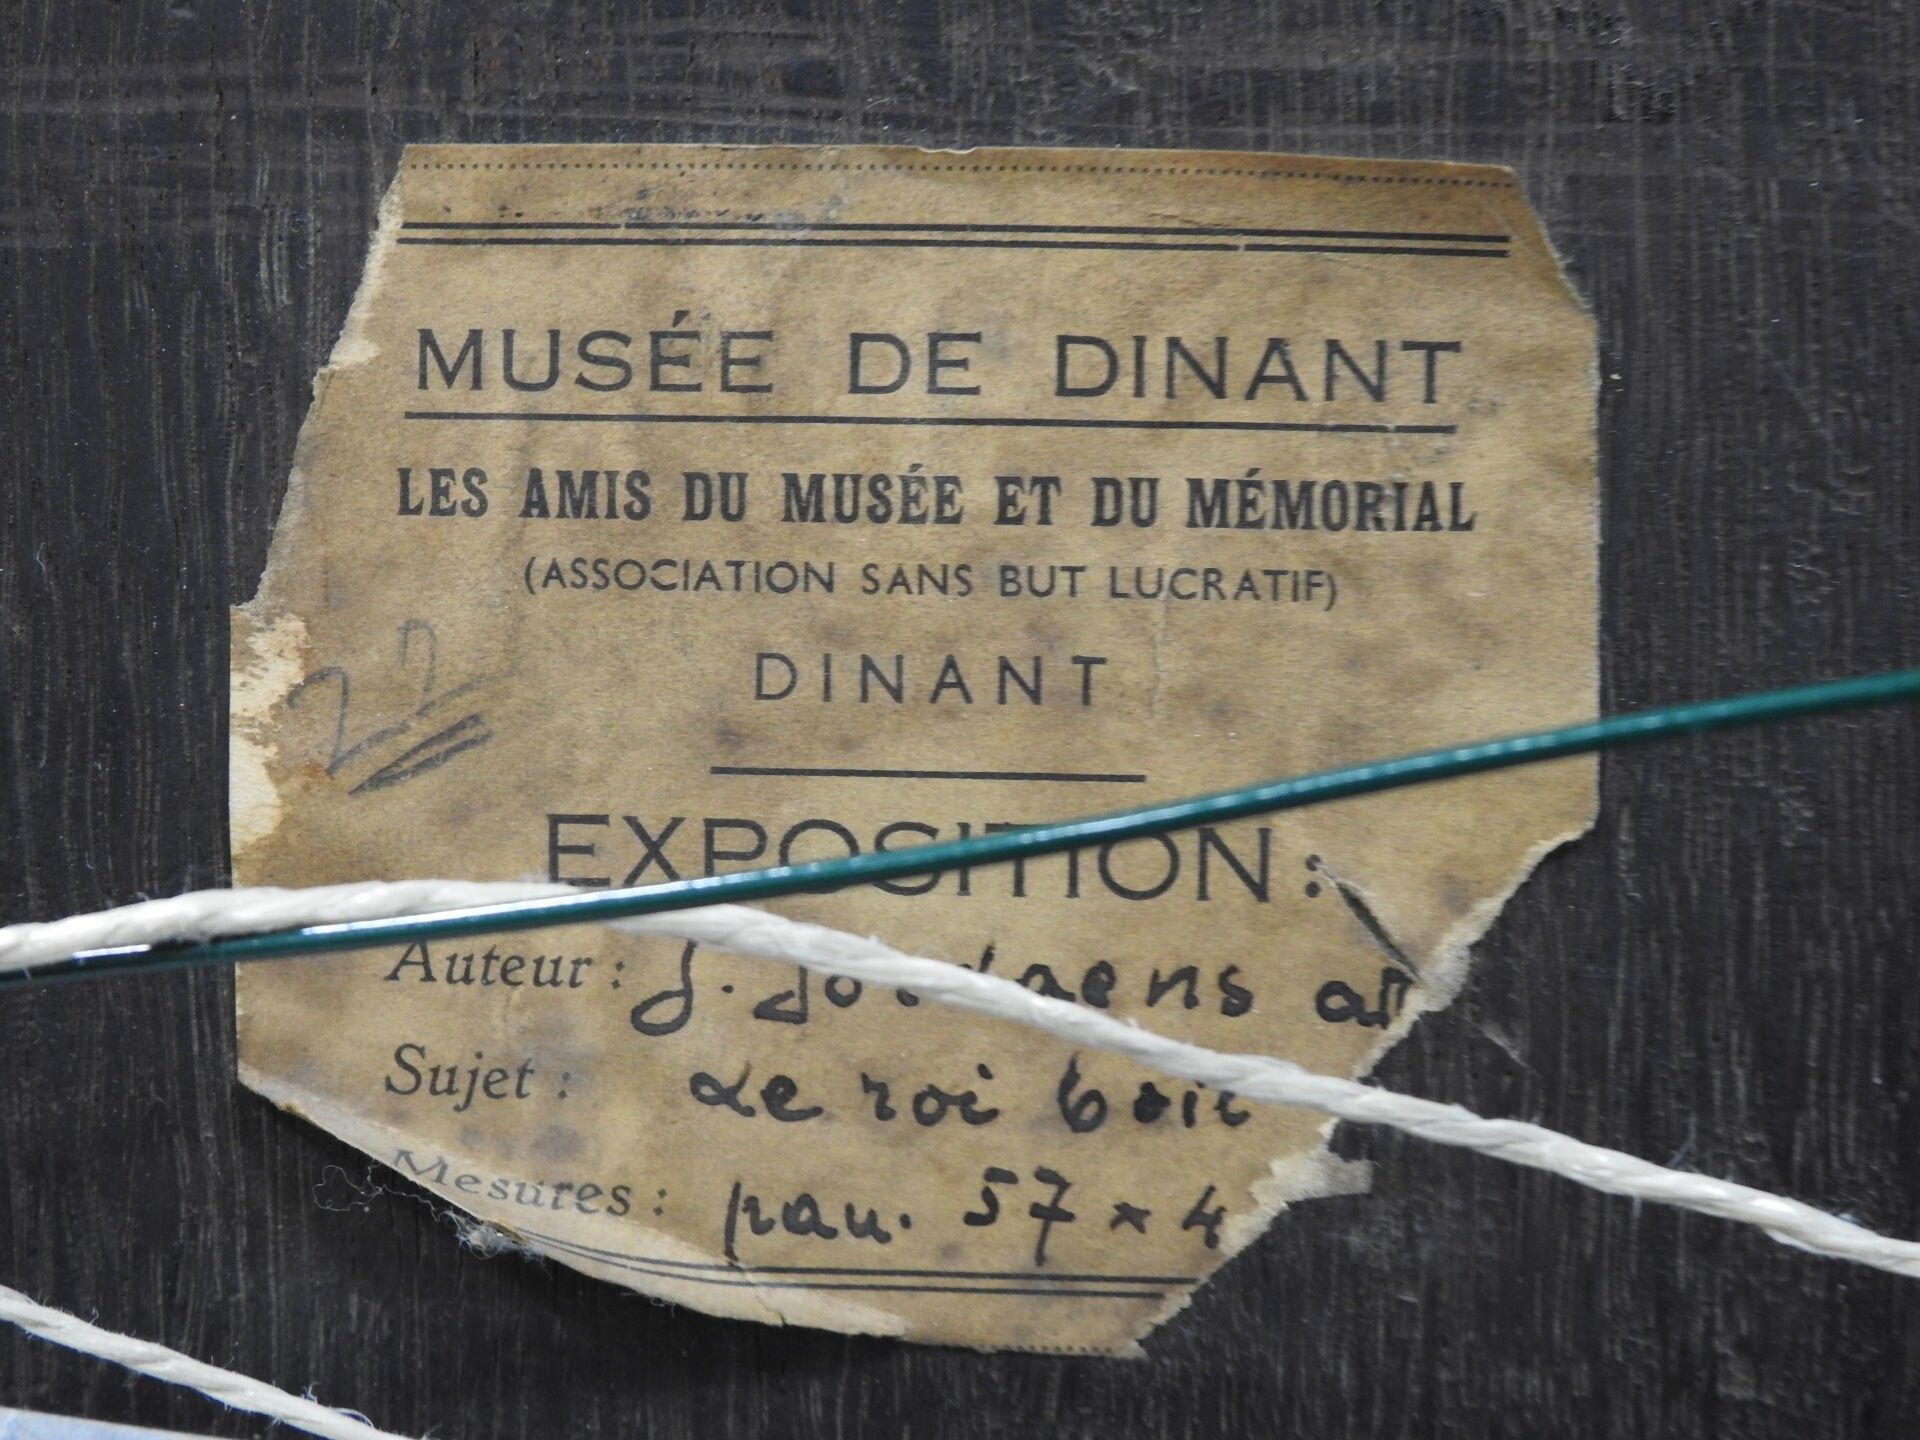 MUSÉE DE DINANT
LES AMIS DU MUSÉE ET DU MÉMORIAL
(ASSOCIATION SANS BUT LUCRATIF)
DINANT
22
EXPOSITION :
Auteur : J. Jordaens
Sujet : Le roi boit
Mesures : pan. 57 x 4